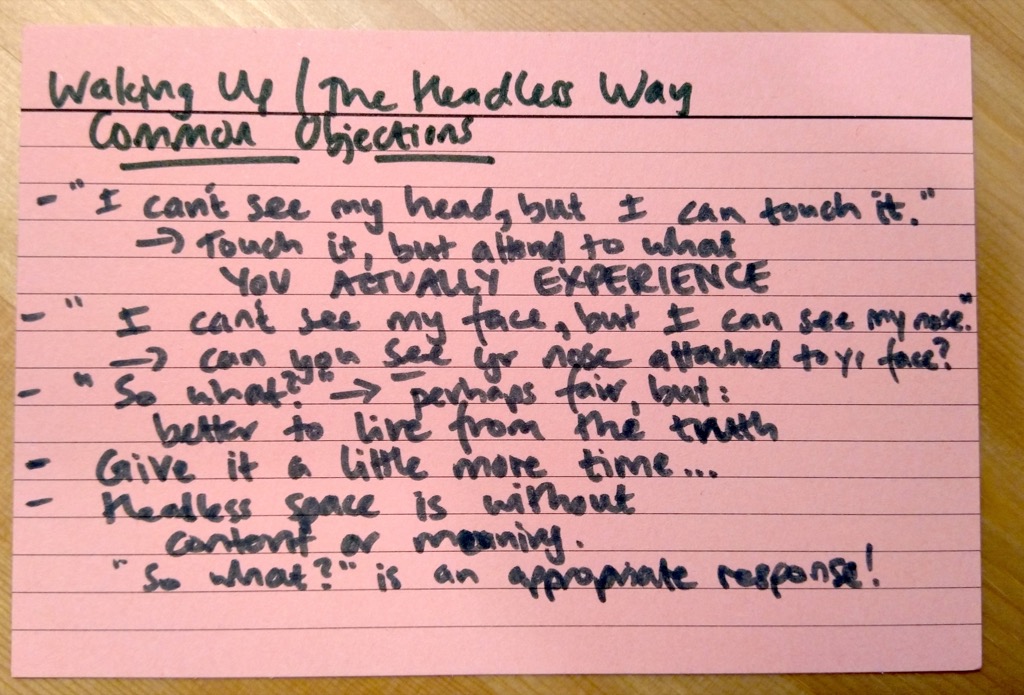 Waking Up / The Headless Way
Common Objections
- "I can't see my head, but I can touch it."
→ Touch it, but attend to what
YOU ACTUALLY EXPERIENCE
- "I can't see my face, but I can see my nose."
→ can you see yr nose attached to yr face?
- "So what?" → perhaps fair, but:
better to live from the truth
- Give it a little more time...
- Headless space is without
content or meaning.
"So what?" is an appropriate response!